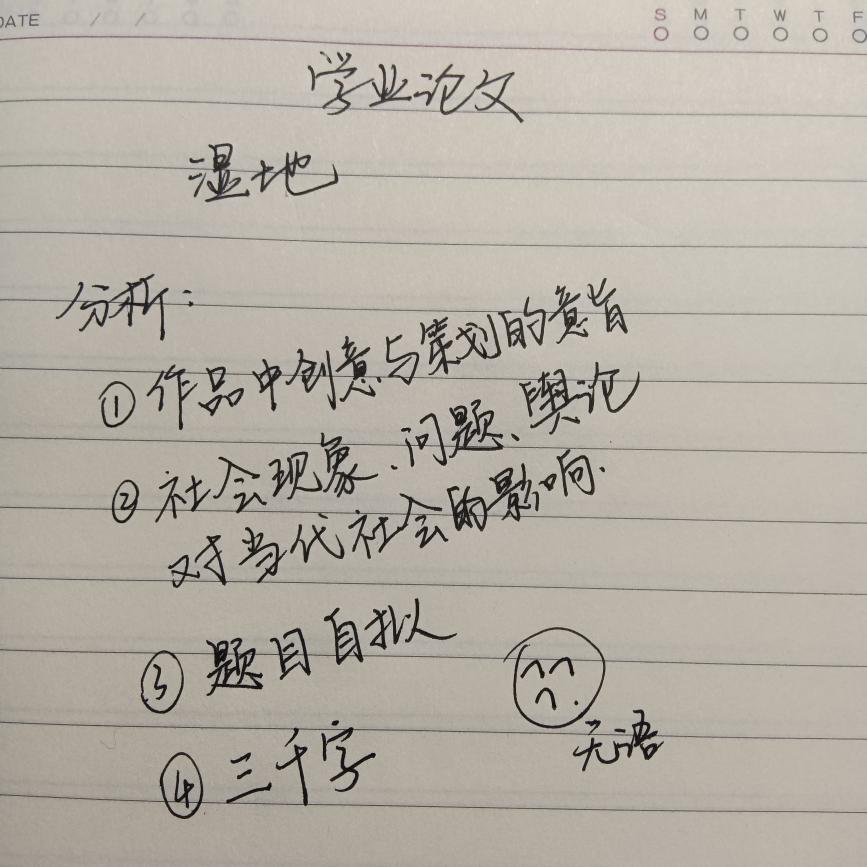 DATE / / S M T W T F
学业论文
湿地
分析:
① 作品中创意与策划的意旨
② 社会现象、问题、舆论
对当代社会的影响.
③ 题目自拟
④ 三千字
无语